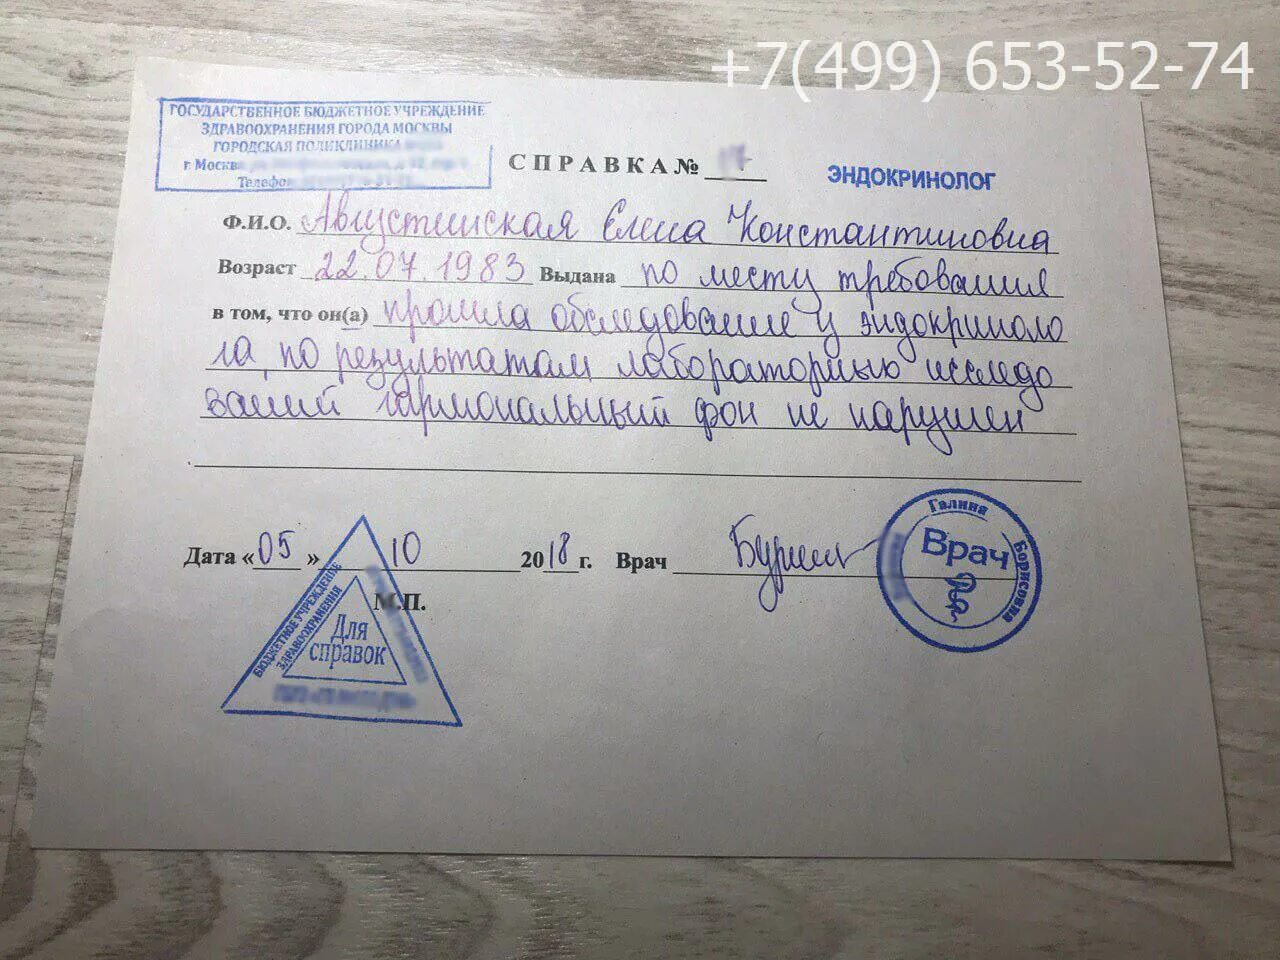 +7(499) 653-52-74
ГОСУДАРСТВЕННОЕ БЮДЖЕТНОЕ УЧРЕЖДЕНИЕ
ЗДРАВООХРАНЕНИЯ ГОРОДА МОСКВЫ
ГОРОДСКАЯ ПОЛИКЛИНИКА
г. Москва
Телефон
СПРАВКА №
ЭНДОКРИНОЛОГ
Ф.И.О. Августинская Елена Константиновна
Возраст 22.07.1983 Выдана по месту требования
в том, что он(а) прошла обследование у эндокриноло
га, по результатам лабораторных исследо
ваний гормональный фон не нарушен
Дата «05» 10 2018 г. Врач
М.П.
БЮДЖЕТНОЕ УЧРЕЖДЕНИЕ
ЗДРАВООХРАНЕНИЯ
Для
справок
Галина
Борисовна
Врач